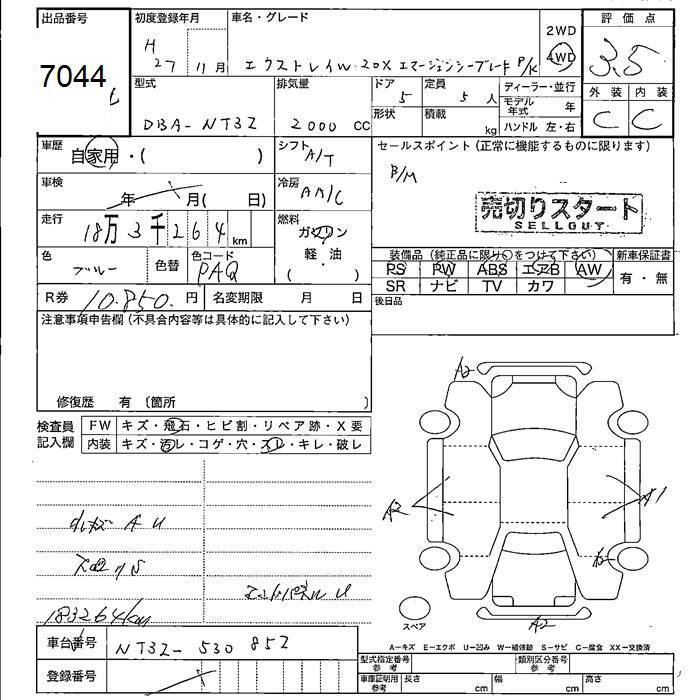 出品番号 初度登録年月 車名・グレード 2WD 評価点
7044 H 27 11月 エクストレイル 20X エマージェンシーブレーキ P/K 4WD 3.5
型式 排気量 ドア 定員 ディーラー・並行 外装 内装
5 5人 モデル年式 年
DBA-NT32 2000 CC 形状 積載 kg ハンドル 左・右 C C
車歴 自家用・( ) シフト A/T セールスポイント(正常に機能するものに限ります)
車検 年 月( 日) 冷房 AA/C B/M
売切りスタート
SELLOUT
走行 18万3千264km 燃料 ガソリン
軽・油
( )
色 ブルー 色替 色コード PAQ
装備品(純正品に限り○をつけて下さい) 新車保証書
PS PW ABS エアB AW 有・無
SR ナビ TV カワ
R券 10.850.円 名変期限 月 日 後日品
注意事項申告欄(不具合内容等は具体的に記入して下さい)
修復歴 有(箇所 )
検査員記入欄 FW キズ・飛石・ヒビ割・リペア跡・X要
内装 キズ・汚レ・コゲ・穴・スレ・キレ・破レ
A2
A2 A1
A U
183264km
スペア A2
A-キズ E-エクボ U-凹み W-補修跡 S-サビ C-腐食 XX-交換済
車台番号 NT32-530852
型式指定番号 参考 類別区分番号 参考
登録番号
車庫証明用 参考 長さ cm 幅 cm 高さ cm